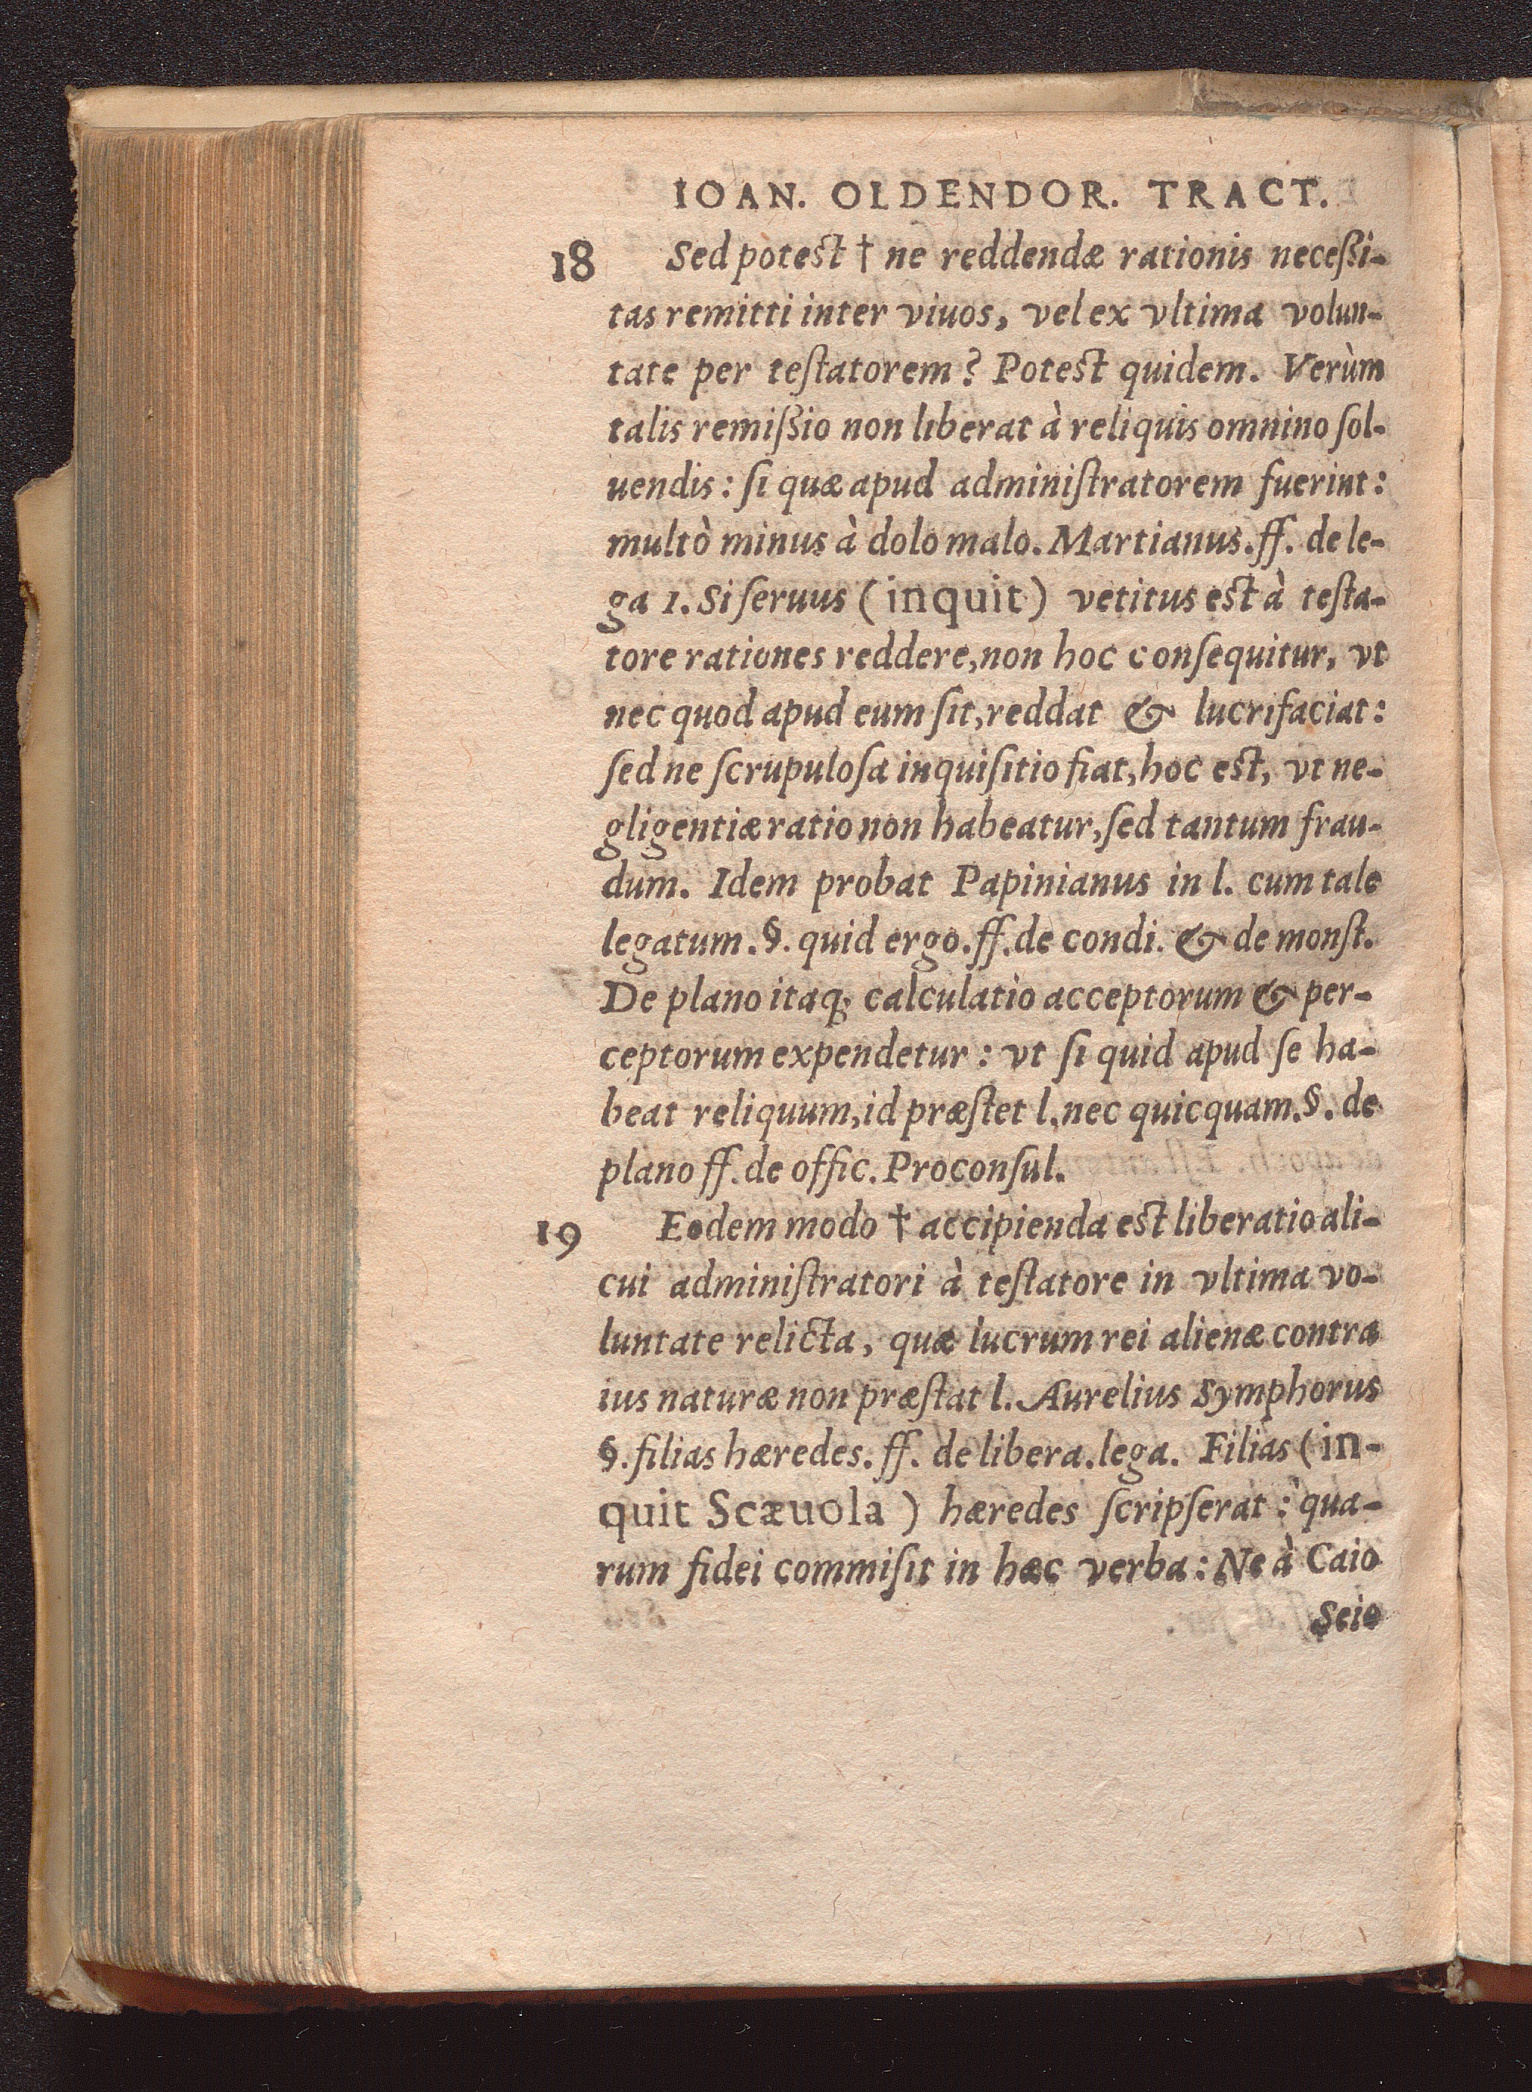 IOAN. OLDENDOR. TRACT.
18 Sed potest † ne reddendæ rationis neceßi-
tas remitti inter viuos, vel ex vltima volun-
tate per teſtatorem? Potest quidem. Verùm
talis remißio non liberat à reliquis omnino ſol-
uendis: ſi quæ apud adminiſtratorem fuerint:
multò minus à dolo malo. Martianus. ff. de le-
ga 1. Si ſeruus (inquit) vetitus est à teſta-
tore rationes reddere, non hoc conſequitur, vt
nec quod apud eum ſit, reddat & lucrifaciat:
ſed ne ſcrupuloſa inquiſitio fiat, hoc est, vt ne-
gligentiæ ratio non habeatur, ſed tantum frau-
dum. Idem probat Papinianus in l. cum tale
legatum. §. quid ergo. ff. de condi. & de monſt.
De plano itaq; calculatio acceptorum & per-
ceptorum expendetur: vt ſi quid apud ſe ha-
beat reliquum, id præſtet l. nec quicquam. §. de
plano ff. de offic. Proconſul.
19 Eodem modo † accipienda est liberatio ali-
cui adminiſtratori à teſtatore in vltima vo-
luntate relicta, quæ lucrum rei alienæ contra
ius naturæ non præſtat l. Aurelius Symphorus
§. filias hæredes. ff. de libera. lega. Filias (in-
quit Scæuola) hæredes ſcripſerat: qua-
rum fidei commiſit in hæc verba: Ne à Caio
Seio